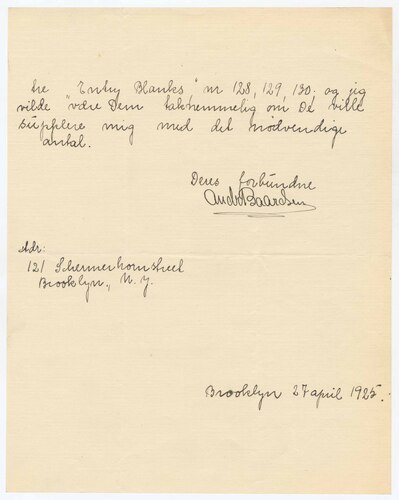 tre "Entry Blanks" nr 128, 129, 130; og jeg
vilde være Dem taknemmelig om De ville
supplere mig med det nødvendige
antal.
Deres forbundne
Andr Baardsen
Adr:
121 Schermerhornstreet
Brooklyn, N.Y.
Brooklyn 27 april 1925.